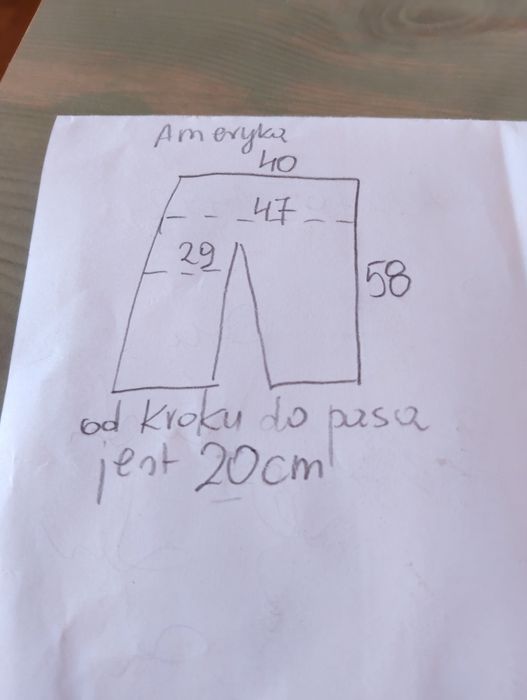 Ameryka
40
47
29
58
od kroku do pasa
jest 20cm